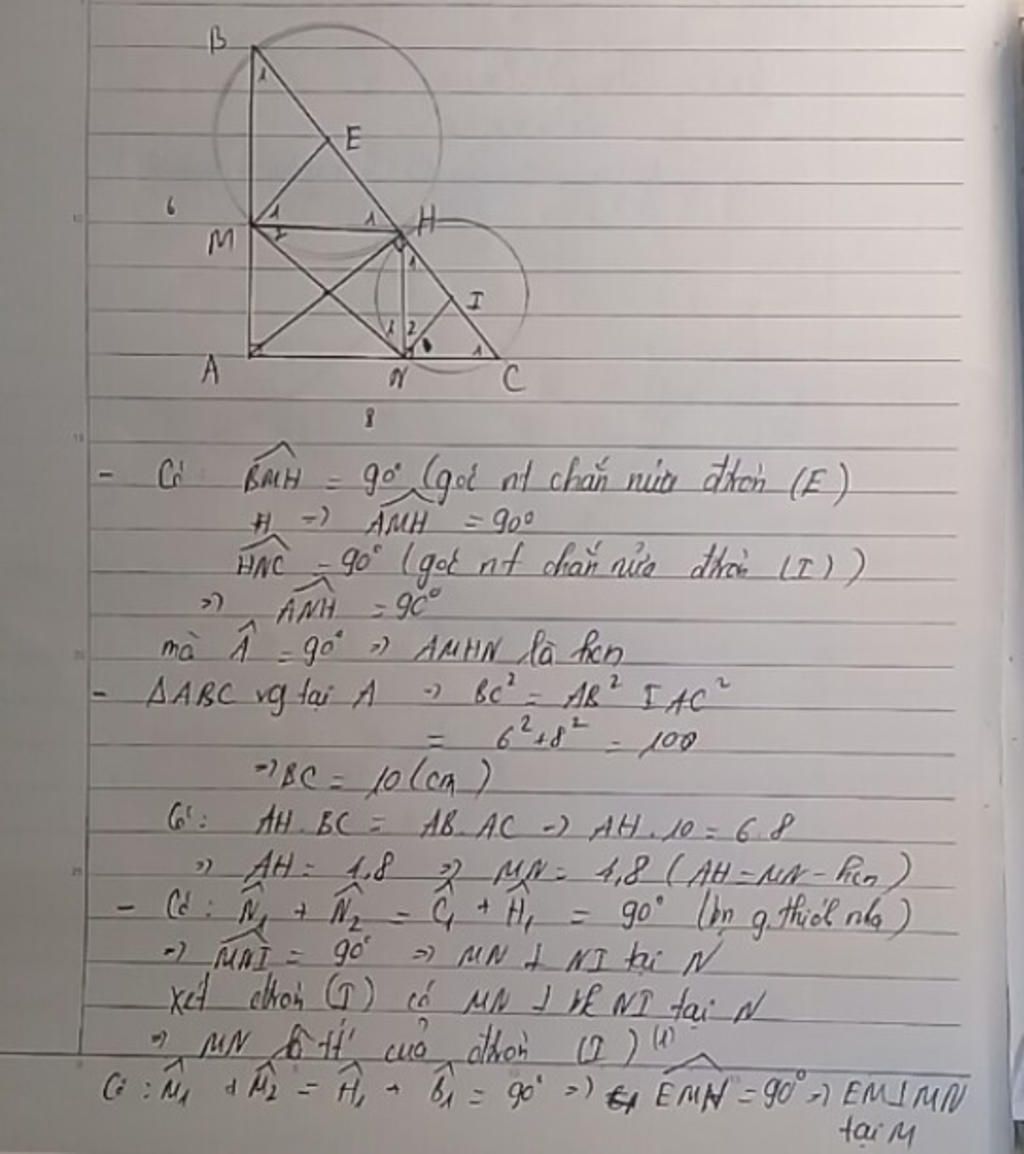 B
1
E
6
1
1
H
M
2
1
I
1
2
1
A
N
C
8
- Có BMH = 90° (góc nt chắn nửa đtròn (E)
H => AMH = 90°
HNC = 90° (góc nt chắn nửa đtròn (I))
=> ANH = 90°
mà Â = 90° => AMHN là hcn
- ΔABC vg tại A => BC² = AB² + AC²
= 6² + 8² = 100
=> BC = 10 (cm)
Có: AH.BC = AB.AC => AH.10 = 6.8
=> AH = 4,8 => MN = 4,8 (AH = MN - hcn)
- Có: N̂₁ + N̂₂ = Ĉ₁ + Ĥ₁ = 90° (bn g.thiết nhọ)
=> MNI = 90° => MN ⊥ NI tại N
Xét đtròn (I) có MN ⊥ bk NI tại N
=> MN là tt' của đtròn (I) (1)
Có: M̂₁ + M̂₂ = Ĥ₁ + B̂₁ = 90° => EMN = 90° => EM ⊥ MN
tại M